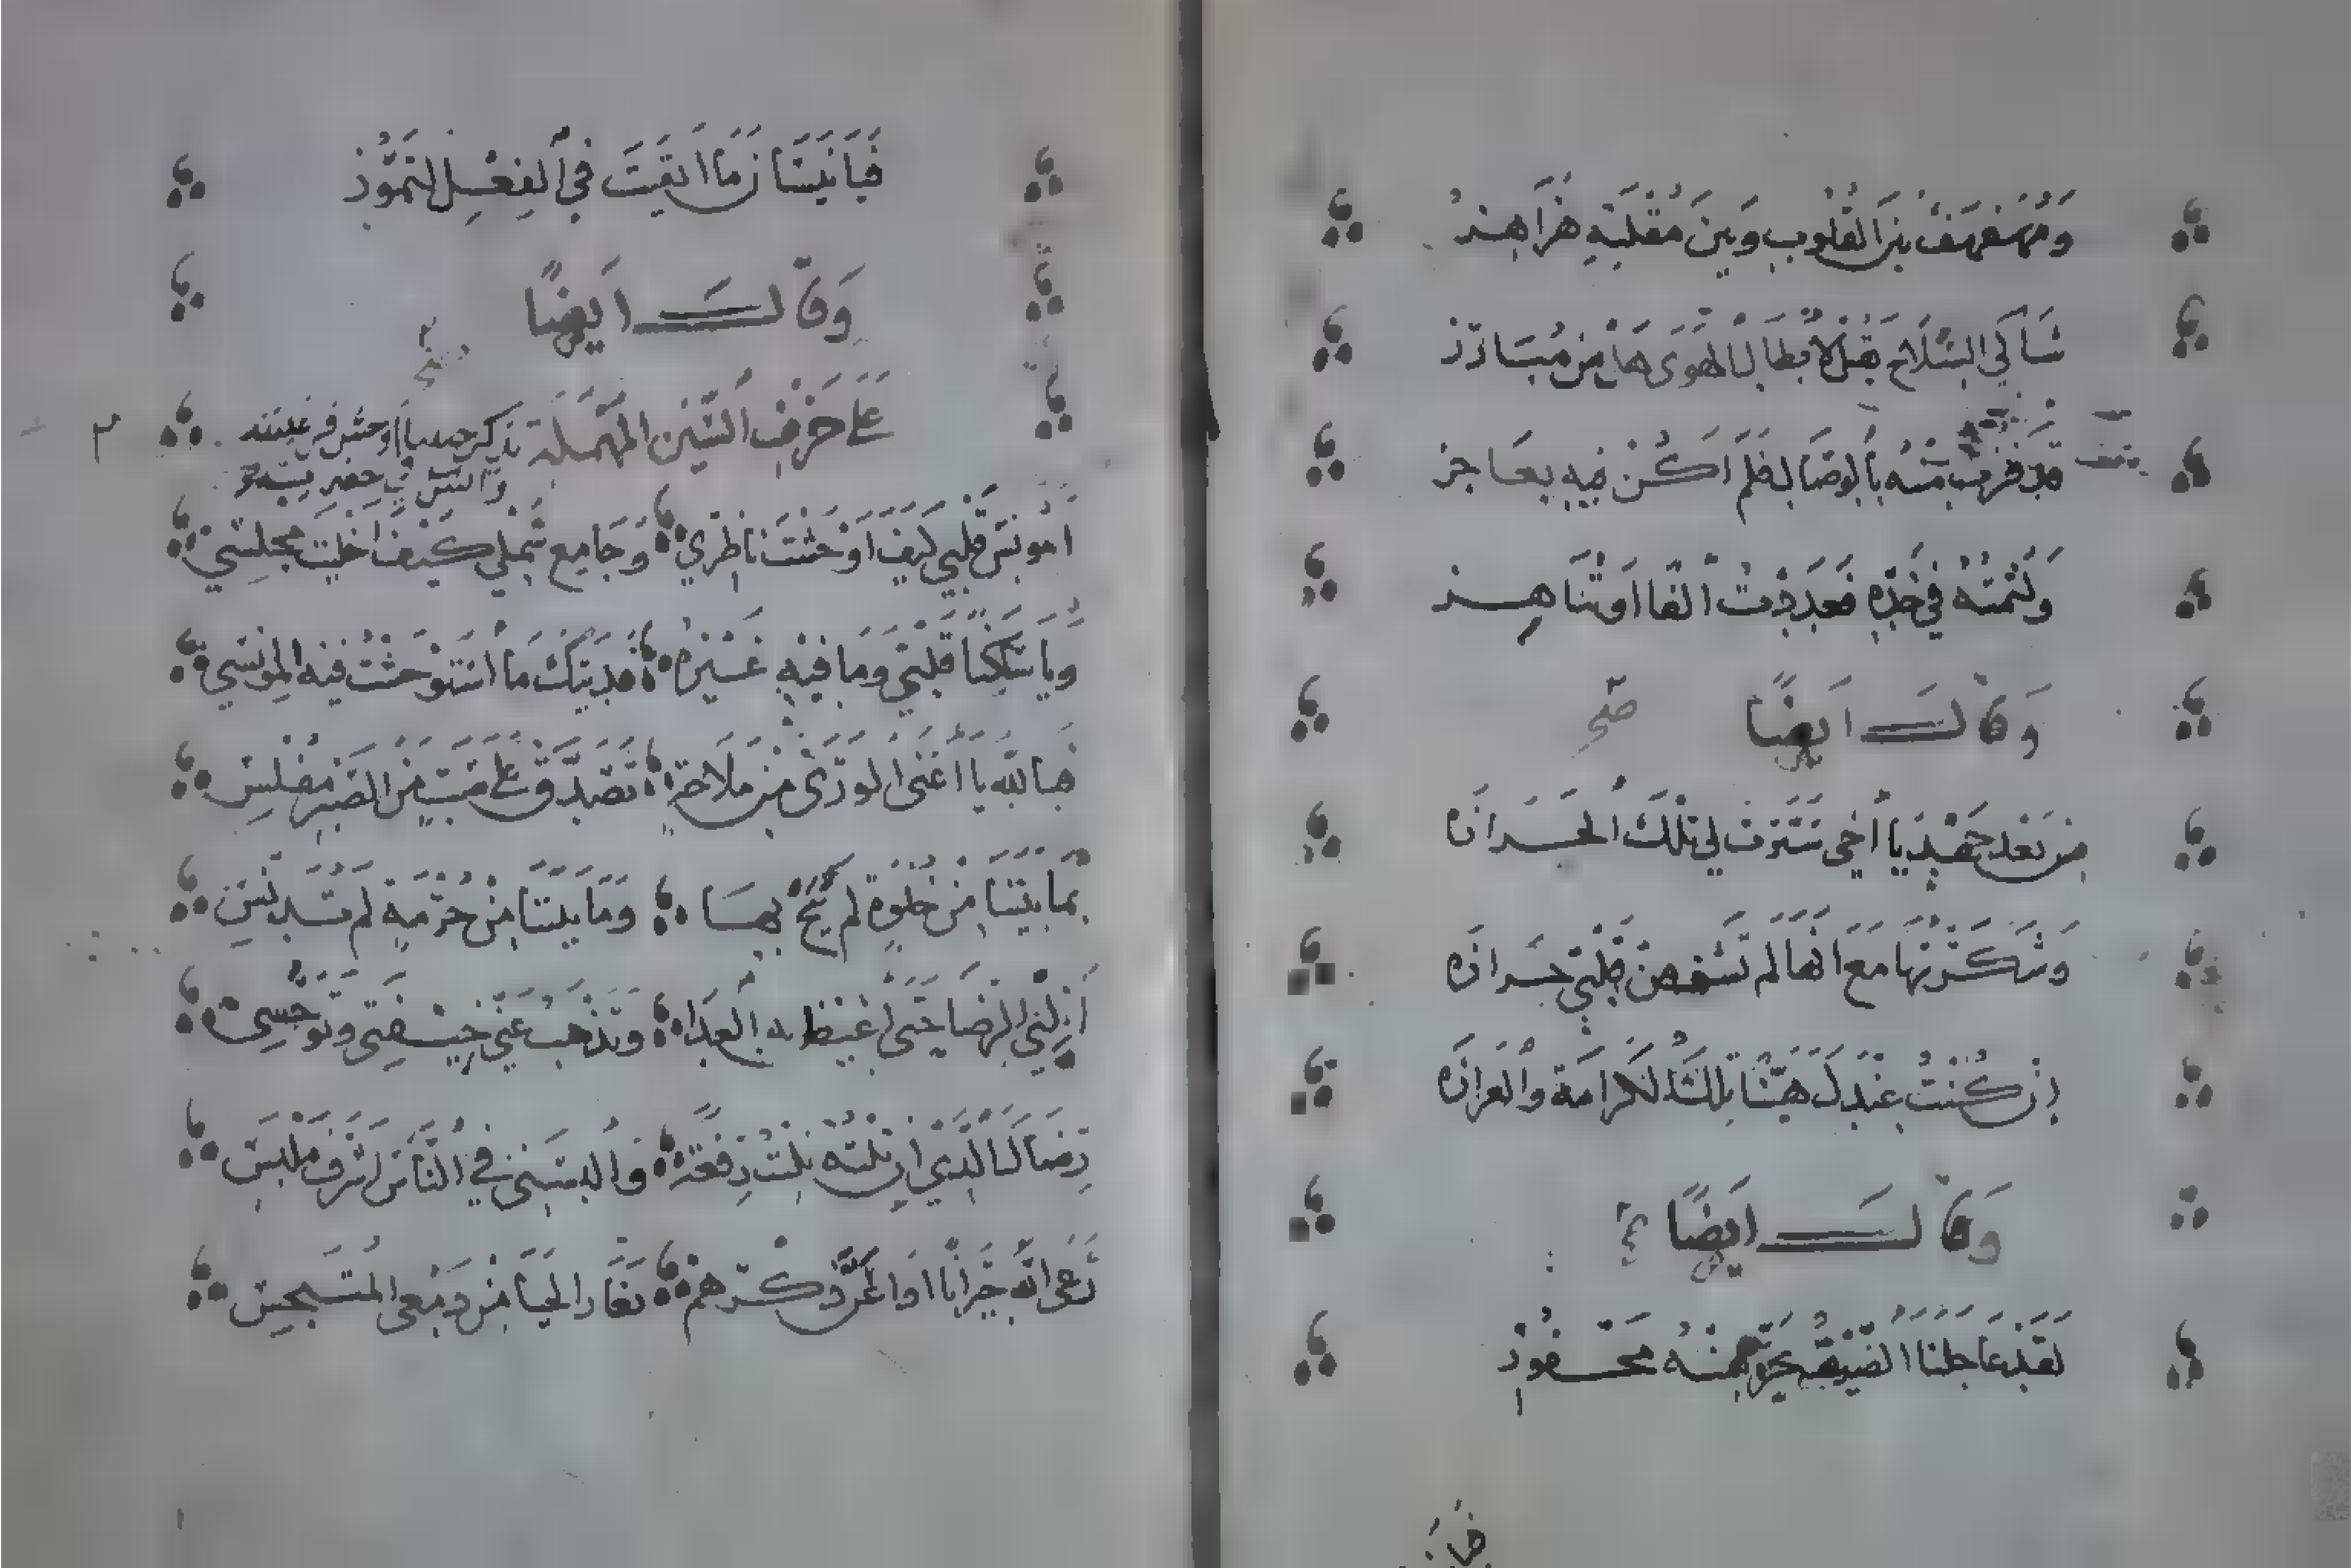 وَمُهَفهَفٌ بَيْنَ القُلُوبِ وَبينَ مُقْلَتِهِ هَزَاهِزْ
شَاكي السِّلَاحِ يَقُلْ لأَبطَالِ الهَوَى هَلْ مِن مُبَارِزْ
قَد فزت مِنْهُ بِالوِصَالِ فَلَم أَكُنْ فِيهِ بِعَاجِزْ
وَلثمتُهُ في خَدِّهِ فَعَدَدْتُ أَلْفًا أَو تُنَاهِزْ
وَقَالَ ايضًا صح
مِن بَعْدِ جَهْدٍ يَا أخي سَيَّرتَ لي تلكَ الجَزازَه
وَشَكَرْتُهَا مَعَ انَّهَا لَم تَشْفِ مِنْ قَلْبي حَزَازَه
إِن كُنْتُ عِنْدَكَ هَيِّنًا فَلَكَ الكَرَامَةُ وَالعَزَازَه
وَقَالَ ايضًا
لَقَدْ عَاجَلَنَا الصَّيْفُ بِحَرٍّ مِنْهُ مَحْفُوزْ
فَيَا
فَيَا نَيْسَانُ مَا ابقَيتَ في الفِعْلِ لِتَمُّوزْ
وَقَالَ ايضًا
عَلى حَرْفِ السِّين المُهْمَلَة يذكر حبيبا اوحش في غيبته
وآنس في حضرته
أَمُونِسَ قَلْبي كَيفَ أَوْحَشْتَ نَاظِرِي وَجَامِعَ شَمْلي كَيْفَ أَخلَيتَ مَجْلِسي
وَيَا سَاكِنًا قَلْبي وَمَا فِيْهِ غَيْرُهُ فَدَيتكَ مَا اسْتَوْحَشْتُ فيه لِمُونِسي
فَبِاللَّهِ يَا أَغْنَى الوَرَى مِن مَلَاحَةٍ تَصَدَّقْ عَلى صَبٍّ مِنَ الصَّبْرِ مُفْلِسِ
بِمَا بَيْنَنَا مِنْ خَلْوَةٍ لَم يُبَحْ بِهَا وَمَا بَيْنَنَا مِنْ حُرْمَةٍ لَم تُدَنَّسِ
أَنِلْني الرِّضَا حَتَّى أُغِيظَ بهِ العِدَا وَتُذْهِبَ عَنِّي خِيفَتي وَتَوَجُّسي
رِضَاكَ الَّذِي إِن نِلْتُهُ نِلْتُ رِفْعَةً وَأَلْبَسَني في النَّاسِ أَشْرَفَ مَلْبَسِ
رَعَى اللَّه جِيرَانًا إذَا عَزَّ ذِكْرُهُمْ يَغَارُ الحَيَا مِنْ دَمْعي المُتَبَجِّسِ